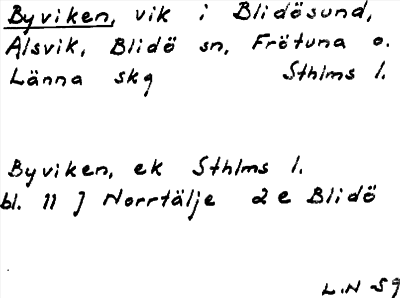 Byviken, vik i Blidösund,
Alsvik, Blidö sn, Frötuna o.
Länna skg Sthlms l.
Byviken, ek Sthlms l.
bl. 11 J Norrtälje 2 e Blidö
L.N 59